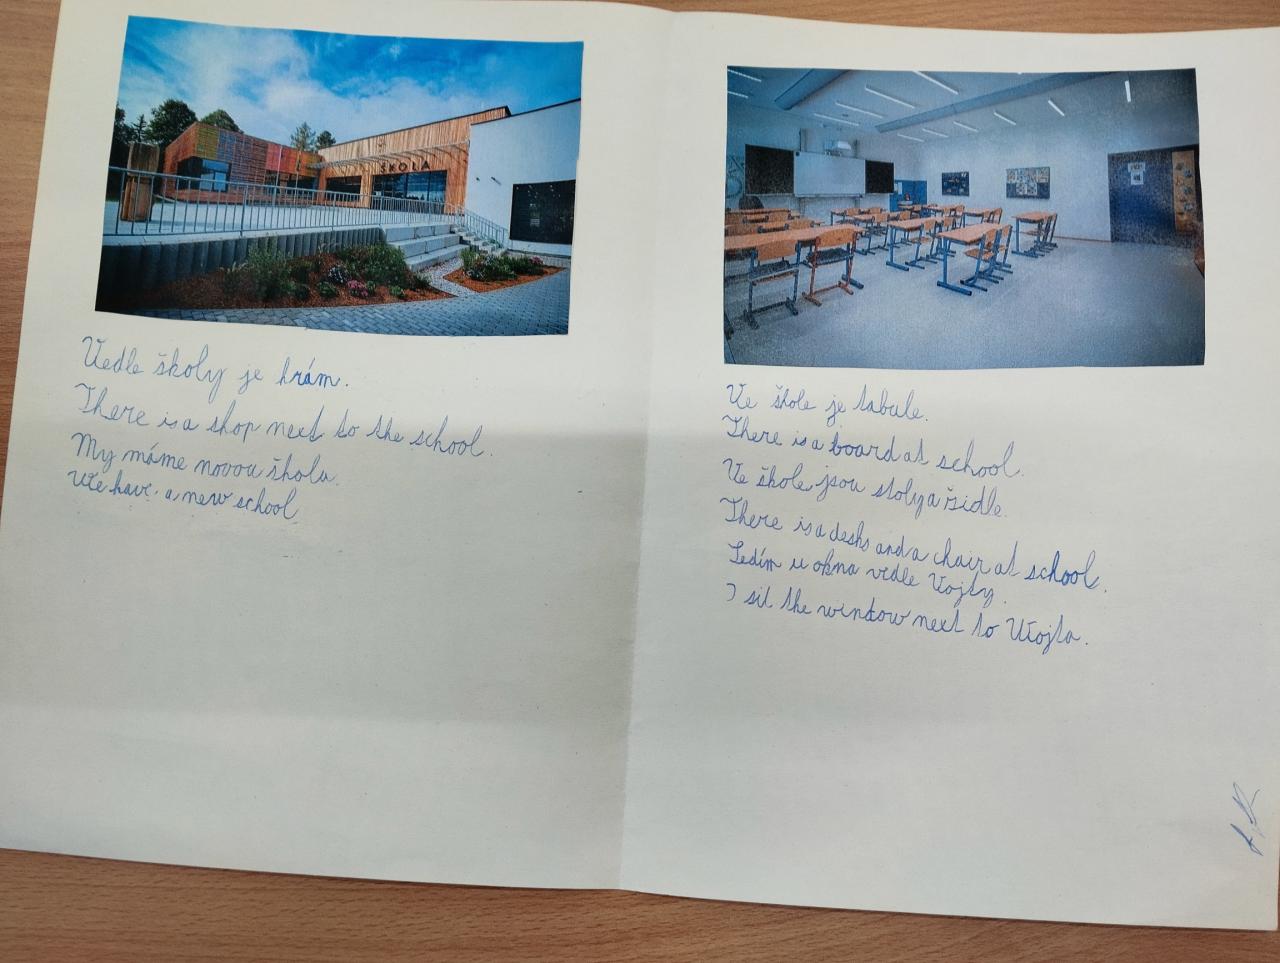 ŠKOLA
Vedle školy je krám.
There is a shop next to the school.
My máme novou školu.
We have a new school
Ve škole je tabule.
There is a board at school.
Ve škole jsou stoly a židle.
There is a desks and a chair at school.
Sedím u okna vedle Vojty.
I sit the window next to Vojta.